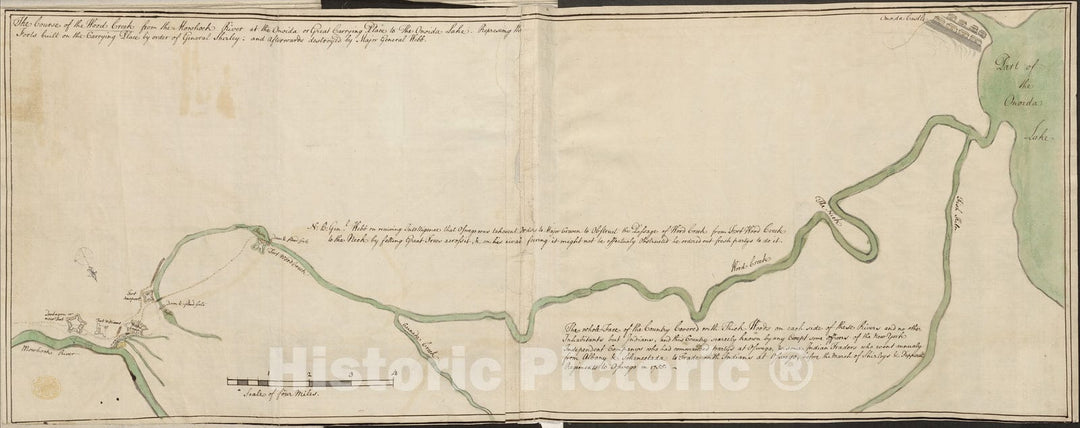 The Course of the Wood Creek from the Mowhock River at the Oneida or Great Carrying Place to The Oneida Lake. Representing the
Forts built on the Carrying Place by order of General Shirley; and afterwards destroyed by Major General Webb.
Castle
Part of
the
Oneida
Lake
The Neck
Fish Kill
N. B. Genl. Webb on receiving Intelligence that Oswego was taken orders to Major Craven to Obstruct the Passage of Wood Creek from Fort Wood Creek
to the Neck by felling Great Trees across it, & on his arrival fearing it might not be effectually Obstructed he ordered out fresh partys to do it.
Fort Wood Creek
Wood Creek
Fort Williams
Mowhock River
Creek
The whole Face of the Country Covered with Thick Woods on each side of these Rivers and no other
Inhabitants but Indians, and this Country scarcely known by any Except some Officers of the New York
Independent Companies who had commanded partys at Oswego, & some Indian Traders who went annually
from Albany & to Trade with Indians at Oswego, before the March of Shirley's &
to Oswego in 1755.
1 2 3
Scale of four Miles.
Historic Pictoric ®